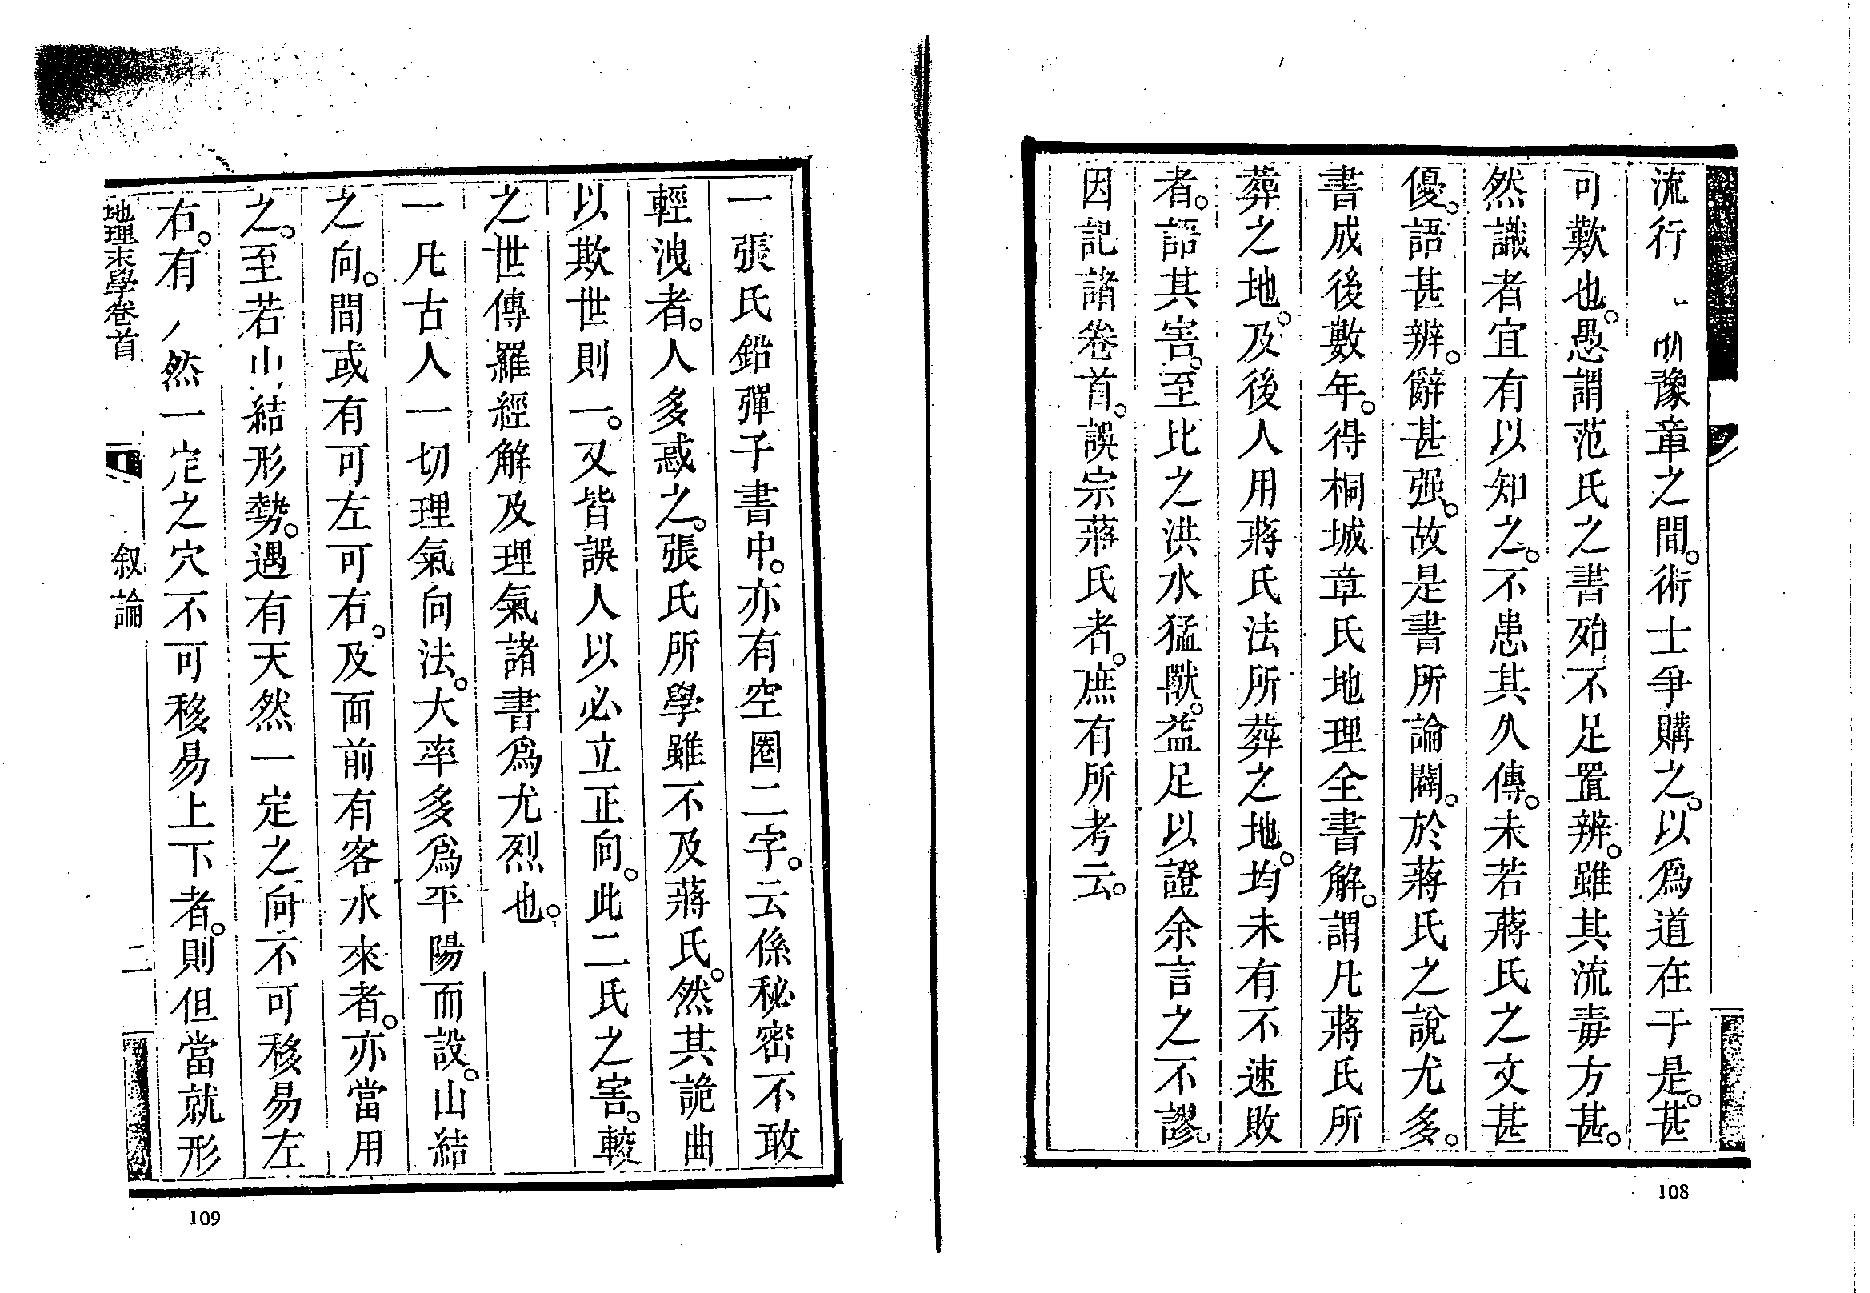 流行豫章之間。術士爭購之。以爲道在于是。甚
可歎也。愚謂范氏之書殆不足置辨。雖其流毒方甚。
然識者宜有以知之。不患其久傳。未若蔣氏之文甚
優。語甚辨。辭甚强。故是書所論闢。於蔣氏之說尤多。
書成後數年。得桐城章氏地理全書解。謂凡蔣氏所
葬之地。及後人用蔣氏法所葬之地。均未有不速敗
者。語其害。至比之洪水猛獸。益足以證余言之不謬。
因記諸卷首。誤宗蔣氏者。庶有所考云。
108
一張氏鉛彈子書中。亦有空圈二字。云係秘密不敢
輕洩者。人多惑之。張氏所學雖不及蔣氏。然其詭曲
以欺世則一。又皆誤人以必立正向。此二氏之害。較
之世傳羅經解及理氣諸書爲尤烈也。
一凡古人一切理氣向法。大率多爲平陽而設。山結
之向。間或有可左可右。及面前有客水來者。亦當用
之。至若山結形勢。遇有天然一定之向不可移易左
右。有然一定之穴不可移易上下者。則但當就形
地理末學卷首
叙論
二
109